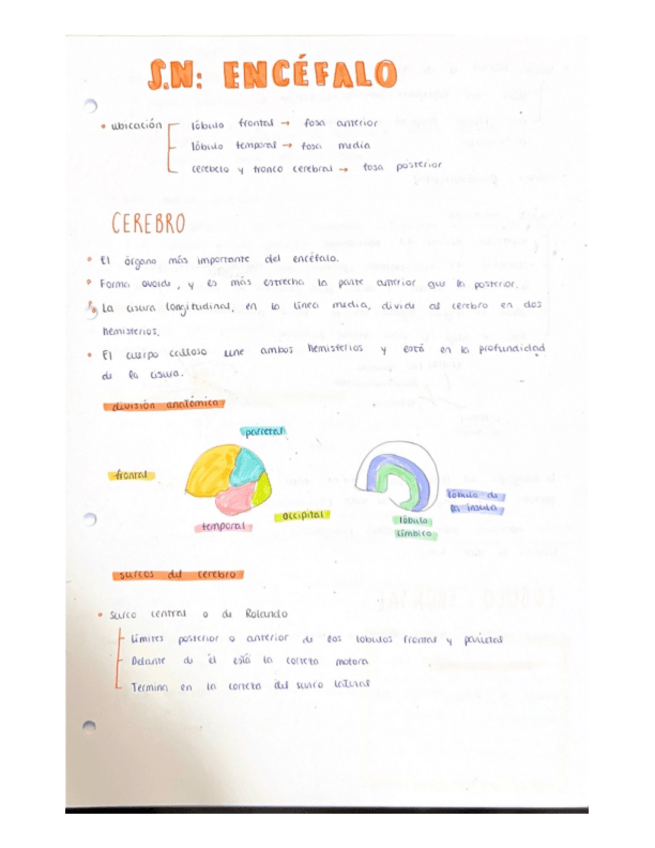 S.N: ENCÉFALO
• ubicación
lóbulo frontal → fosa anterior
lóbulo temporal → fosa media
cerebelo y tronco cerebral → fosa posterior
CEREBRO
• El órgano más importante del encéfalo.
• Forma ovoide, y es más estrecha la parte anterior que la posterior.
• La cisura longitudinal, en la línea media, divide al cerebro en dos
hemisferios.
• El cuerpo calloso une ambos hemisferios y está en la profundidad
de la cisura.
división anatómica
parietal
frontal
lóbulo de
la ínsula
occipital
temporal
lóbulo
límbico
surcos del cerebro
• Surco central o de Rolando
Límites posterior o anterior de los lóbulos frontal y parietal
Delante de él está la corteza motora
Termina en la corteza del surco lateral